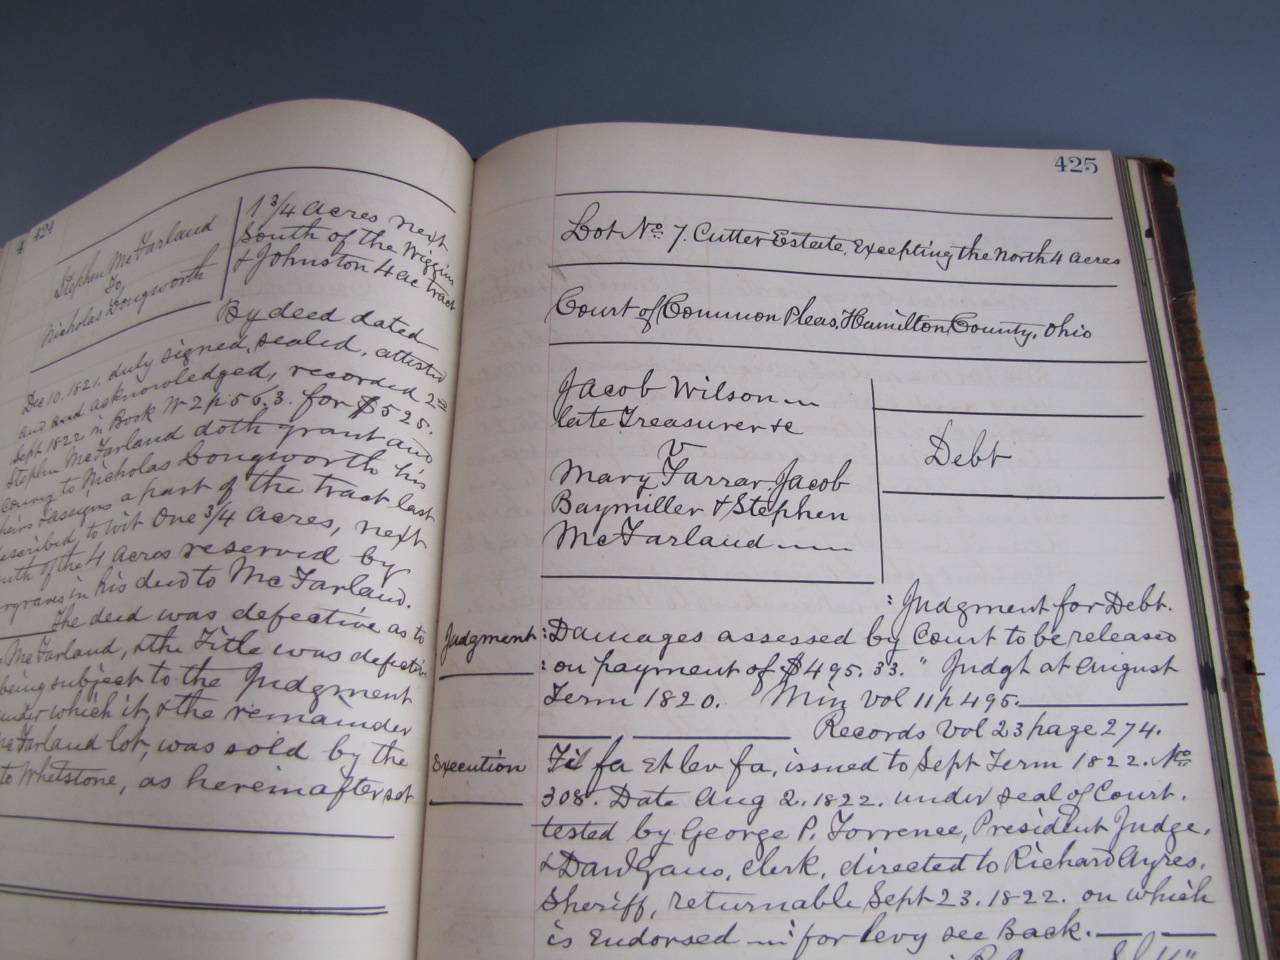 424
Stephen McFarland
To
Nicholas Longworth
1 3/4 acres next
South of the Wiggins
& Johnston 4 ac tract
By deed dated
Dec 10. 1821. duly signed, sealed, attested
and acknowledged, recorded 2nd
Sept 1822 in Book W 2 p 563. for $525.
Stephen McFarland doth grant and
convey to Nicholas Longworth his
heirs & assigns a part of the tract last
described, to wit One 3/4 acres, next
South of the 4 acres reserved by
in his deed to McFarland.
The deed was defective as to
McFarland, & the Title was defective
being subject to the Judgment
under which it, & the remainder
McFarland lot, was sold by the
to Whetstone, as hereinafter set
425
Lot No. 7. Cutter Estate, Excepting the North 4 acres
Court of Common Pleas, Hamilton County, Ohio
Jacob Wilson
late Treasurer &c
v
Mary Farrar, Jacob
Baymiller & Stephen
McFarland
Debt
: Judgment for Debt.
Judgment : Damages assessed by Court to be released
: on payment of $495.33. " Judgt at August
Term 1820. Min vol 11 p 495.
Records Vol 23 page 274.
Execution Fi fa et lev fa, issued to Sept Term 1822. No.
308. Date Aug 2. 1822. under seal of Court.
tested by George P. Torrence, President Judge,
& Danl Gano, Clerk, directed to Richard Ayres,
Sheriff, returnable Sept 23. 1822. on which
is Endorsed : for levy see Back.